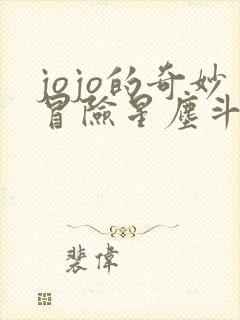 jojo的奇妙
冒險星塵斗
裴偉